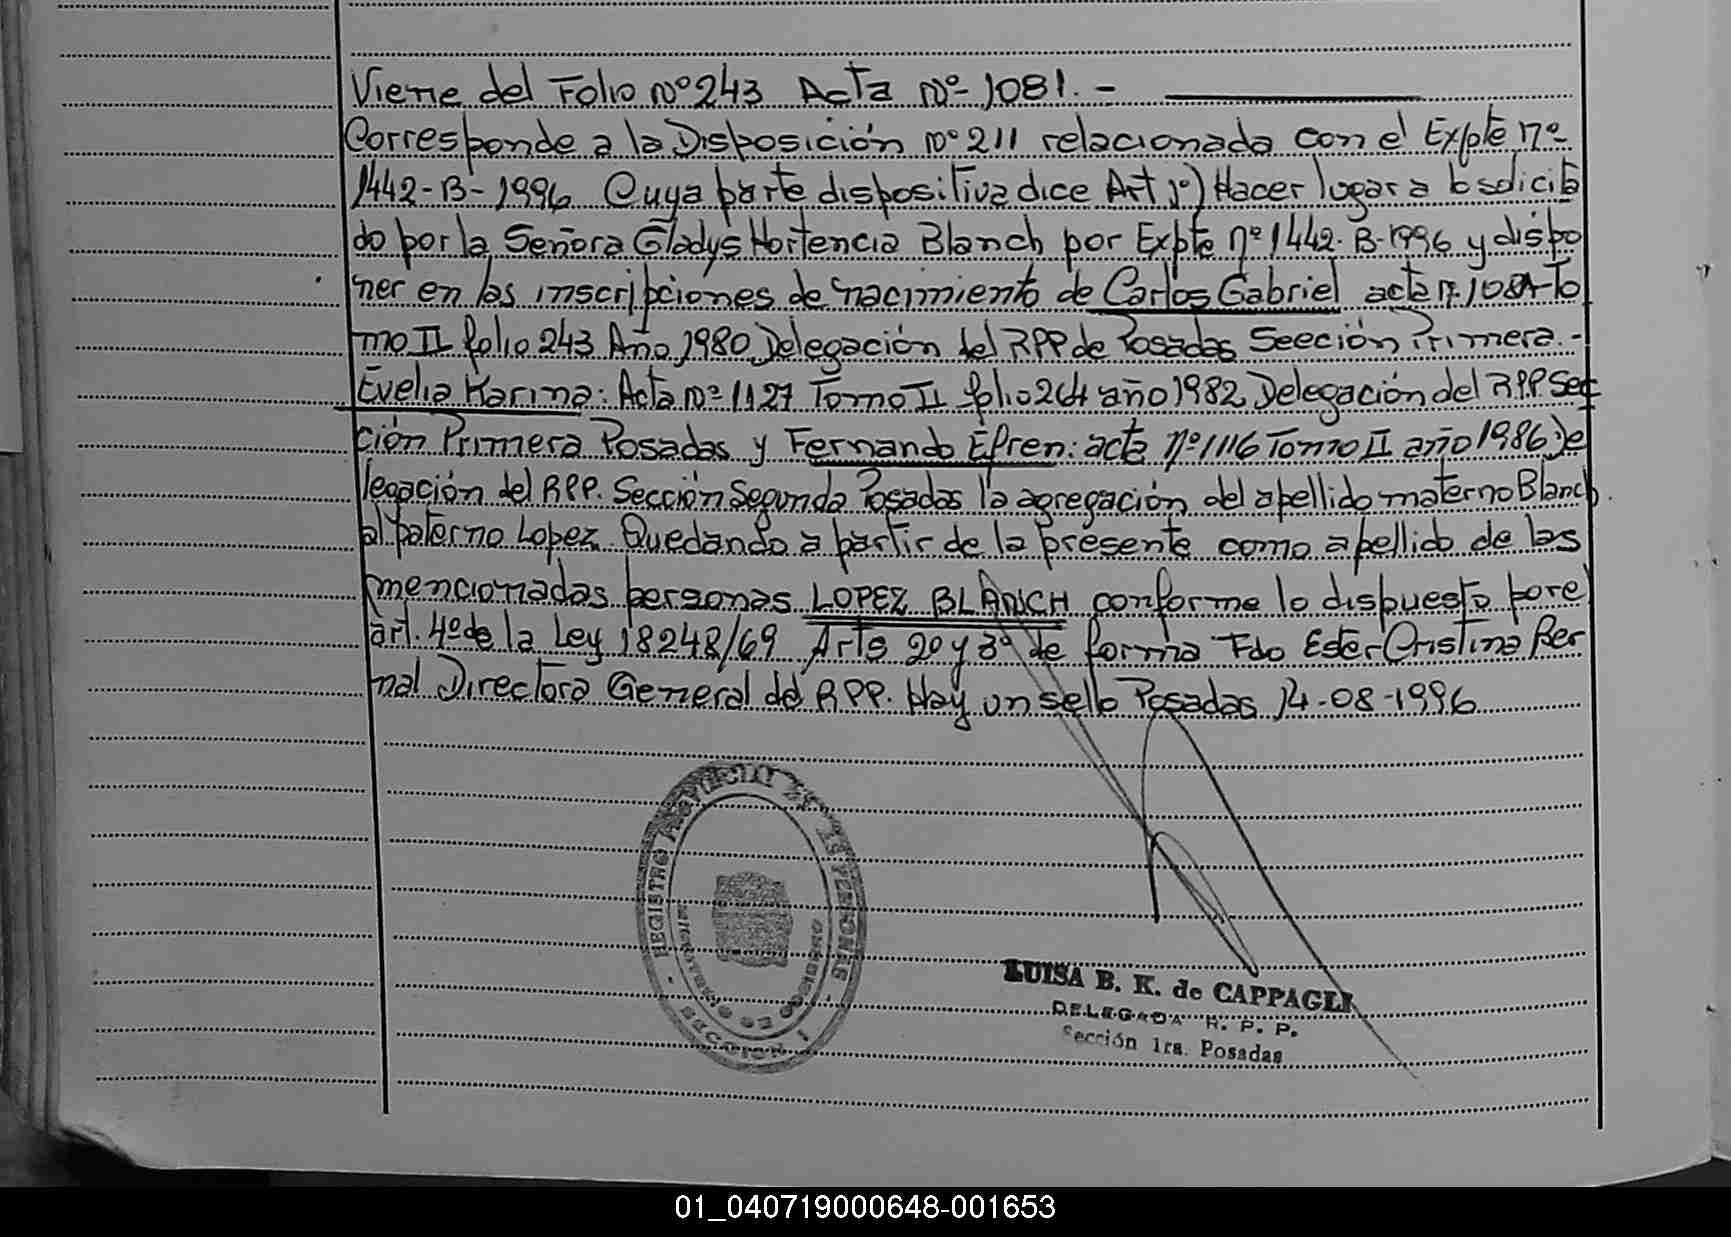 Viene del Folio Nº 243 Acta Nº 1081. -
Corresponde a la Disposición Nº 211 relacionada con el Expte nº
1442-B-1996 Cuya parte dispositiva dice Art 1º) Hacer lugar a lo solicita
do por la Señora Gladys Hortencia Blanch por Expte nº 1442-B-1996 y dispo
ner en las inscripciones de nacimiento de Carlos Gabriel acta nº 1081-To
mo II folio 243 Año 1980 Delegación del RPP de Posadas Sección Primera.-
Evelia Karina: Acta Nº 1127 Tomo II folio 264 año 1982 Delegación del R.P.P. Sec
ción Primera Posadas y Fernando Efren: acta nº 1116 Tomo II año 1986 De
legación del RPP. Sección Segunda Posadas la agregación del apellido materno Blanch
al paterno Lopez. Quedando a partir de la presente como apellido de las
mencionadas personas LOPEZ BLANCH conforme lo dispuesto por el
art. 4º de la Ley 18248/69 Arts 2º y 3º de forma Fdo Ester Cristina Ber
nal Directora General del RPP. Hay un sello Posadas 14-08-1996
REGISTRO PROVINCIAL DE LAS PERSONAS
SECCION 1
LUISA B. K. de CAPPAGLI
DELEGADA R. P. P.
Sección 1ra. Posadas
01_040719000648-001653